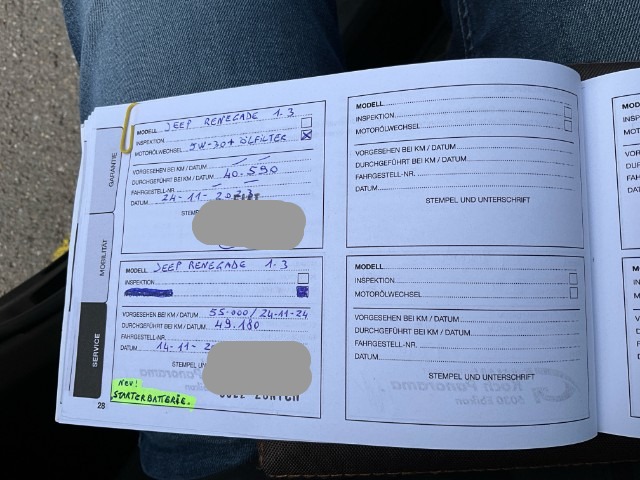 GARANTIE
MOBILITÄT
SERVICE
MODELL JEEP RENEGADE 1.3
INSPEKTION
MOTORÖLWECHSEL 5W-30+ ÖLFILTER
VORGESEHEN BEI KM / DATUM
DURCHGEFÜHRT BEI KM / DATUM 40.590
FAHRGESTELL-NR.
DATUM 24-11-20
STEMP
MODELL JEEP RENEGADE 1.3
INSPEKTION
VORGESEHEN BEI KM / DATUM 55.000/ 24-11-24
DURCHGEFÜHRT BEI KM / DATUM 49.180
FAHRGESTELL-NR.
DATUM 14-11-2
STEM
NEU!
STARTERBATTERIE.
28
MODELL
INSPEKTION
MOTORÖLWECHSEL
VORGESEHEN BEI KM / DATUM
DURCHGEFÜHRT BEI KM / DATUM
FAHRGESTELL-NR.
DATUM
STEMPEL UND UNTERSCHRIFT
MODELL
INSPEKTION
MOTORÖLWECHSEL
VORGESEHEN BEI KM / DATUM
DURCHGEFÜHRT BEI KM / DATUM
FAHRGESTELL-NR.
DATUM
STEMPEL UND UNTERSCHRIFT